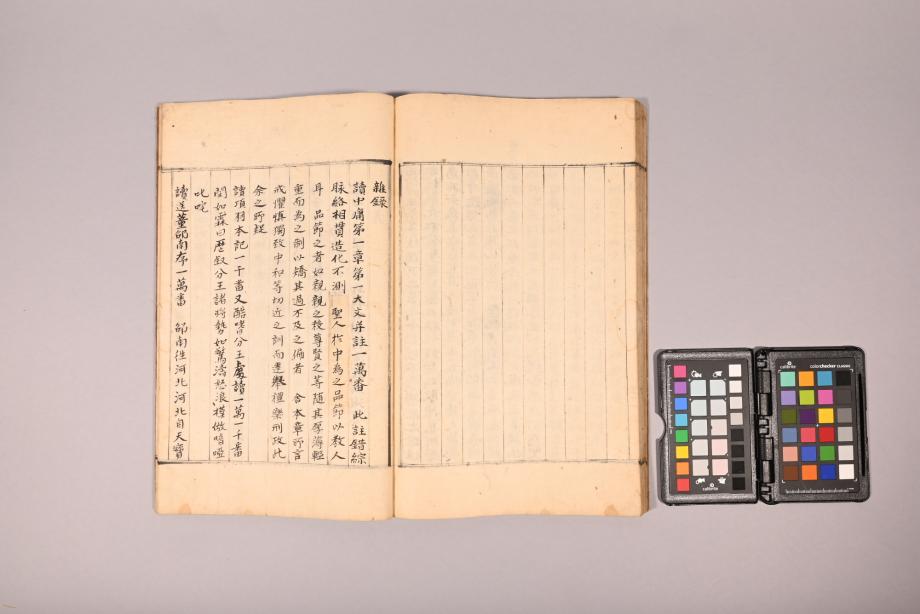 雜錄
讀中庸第一章第一大文并註一萬番 此註錯綜
脉絡相貫造化不測 聖人於中為之品節以教人
耳 品節之者如親親之殺尊賢之等隨其厚薄輕
重而為之制以矯其過不及之偏者 舍本章所言
戒懼愼獨致中和等切近之訓而遠擧禮樂刑政此
余之所疑
讀項羽本記一千番又酷嗜分王處讀一萬一千番
間如霖曰歷叙分王諸將勢如驚濤怒浪摸倣喑啞
叱咤
讀送董邵南序一萬番 邵南徃河北河北自天寶
calibrite
colorchecker CLASSIC
calibrite